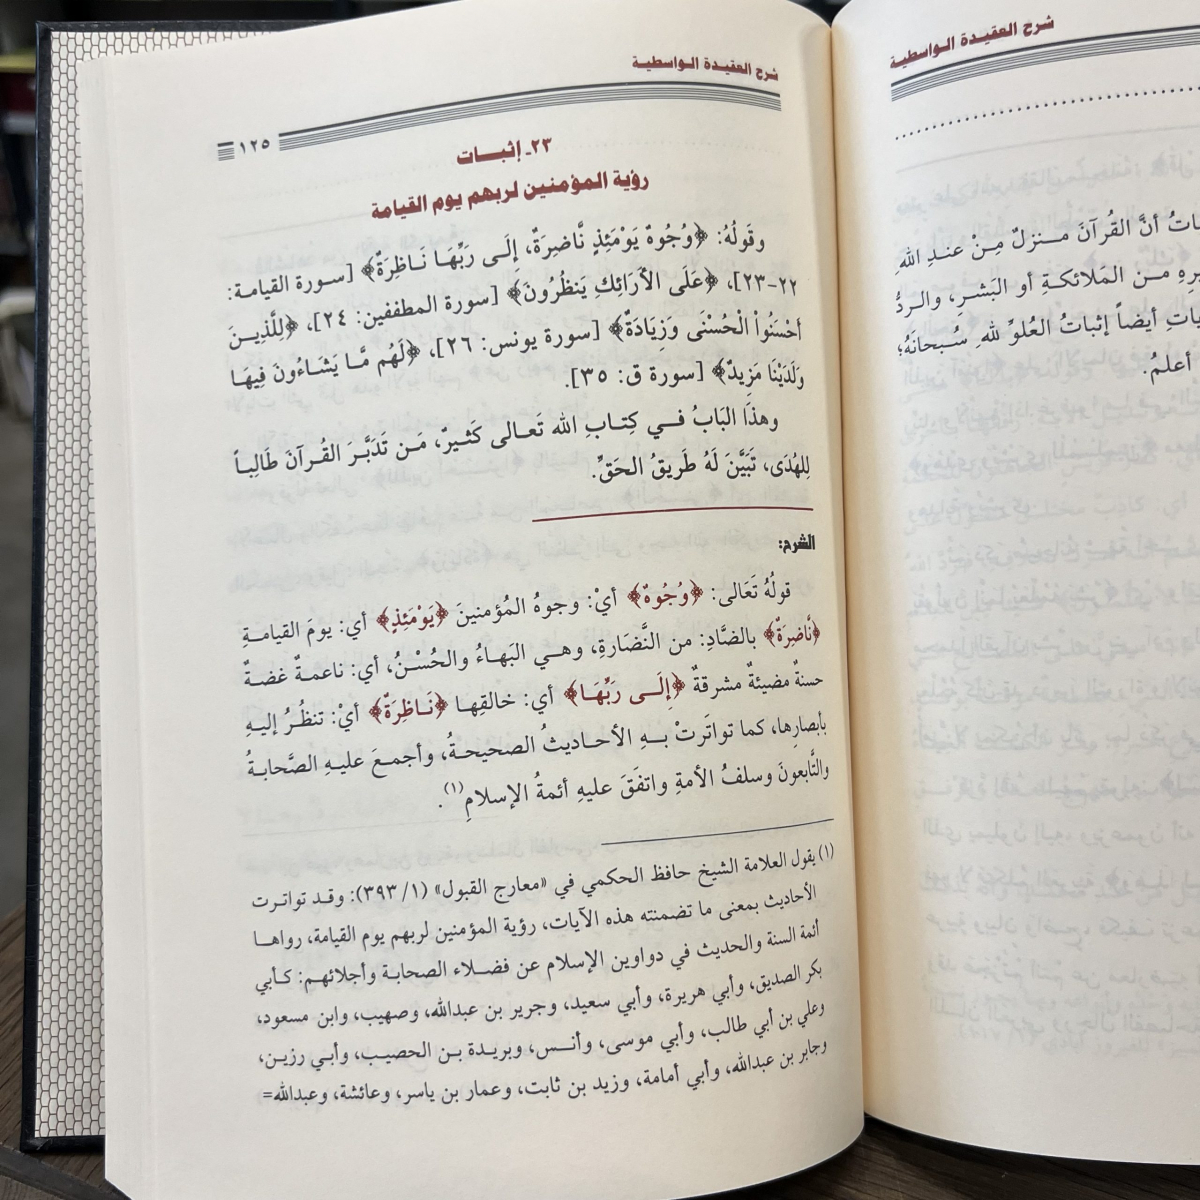 شرح العقيدة الواسطية
١٢٥
٢٣ـ إثبات
رؤية المؤمنين لربهم يوم القيامة
وقَولُهُ: ﴿وُجُوهٌ يَوْمَئِذٍ نَّاضِرَةٌ، إلَى رَبِّهَا نَاظِرَةٌ﴾ [سورة القيامة:
٢٢-٢٣]، ﴿عَلَى الأَرَائِكِ يَنظُرُونَ﴾ [سورة المطففين: ٢٤]، ﴿لِلَّذِينَ
أَحْسَنُواْ الْحُسْنَى وَزِيَادَةٌ﴾ [سورة يونس: ٢٦]، ﴿لَهُم مَّا يَشَاءُونَ فِيهَا
وَلَدَيْنَا مَزِيدٌ﴾ [سورة ق: ٣٥].
وهذَا البَابُ فـي كِتابِ الله تَعالى كَثيرٌ، مَن تَدَبَّرَ القُرآنَ طَالِباً
لِلهُدَى، تَبَيَّنَ لَهُ طَريقُ الحَقِّ.
الشرح:
قولُهُ تَعَالى: ﴿وُجُوهٌ﴾ أيْ: وجوهُ المُؤمنينَ ﴿يَوْمَئِذٍ﴾ أي: يومَ القيامةِ
﴿نَّاضِرَةٌ﴾ بالضَّادِ: من النَّضَارةِ، وهي البَهاءُ والحُسْنُ، أي: ناعمةٌ غضةٌ
حسنةٌ مضيئةٌ مشرقةٌ ﴿إلَـى رَبِّهَا﴾ أي: خالقِها ﴿نَاظِرَةٌ﴾ أيْ: تنظُرُ إليهِ
بأبصارِها، كما تواتَرتْ بـهِ الأحاديثُ الصحيحةُ، وأجمعَ عليهِ الصَّحابةُ
والتَّابعونَ وسلفُ الأمةِ واتفَقَ عليهِ أئمةُ الإسلامِ(١).
(١) يقول العلامة الشيخ حافظ الحكمي في «معارج القبول» (١/ ٣٩٣): وقد تواترت
الأحاديث بمعنى ما تضمنته هذه الآيات، رؤية المؤمنين لربهم يوم القيامة، رواها
أئمة السنة والحديث في دواوين الإسلام عن فضلاء الصحابة وأجلائهم: كأبي
بكر الصديق، وأبي هريرة، وأبي سعيد، وجرير بن عبدالله، وصهيب، وابن مسعود،
وعلي بن أبي طالب، وأبي موسى، وأنس، وبريدة بن الحصيب، وأبي رزين،
وجابر بن عبدالله، وأبي أمامة، وزيد بن ثابت، وعمار بن ياسر، وعائشة، وعبدالله=
شرح العقيدة الواسطية
أنَّ القُرآنَ مـنزلٌ مِنْ عندِ اللهِ
مـن المَلائكـةِ أو البَشرِ، والـردُّ
أيضاً إثباتُ العُلوِّ للهِ سُبحانَهُ؛
أعلمُ.